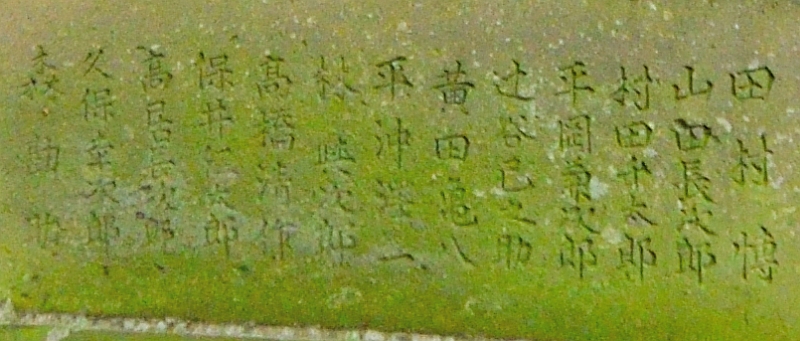 田村愽
山田長次郎
村田千太郎
平岡菊次郎
辻谷己之助
黄田亀八
平沖 一
林 次郎
高橋清作
保井仁太郎
高居長次郎
久保幸次郎
森 助